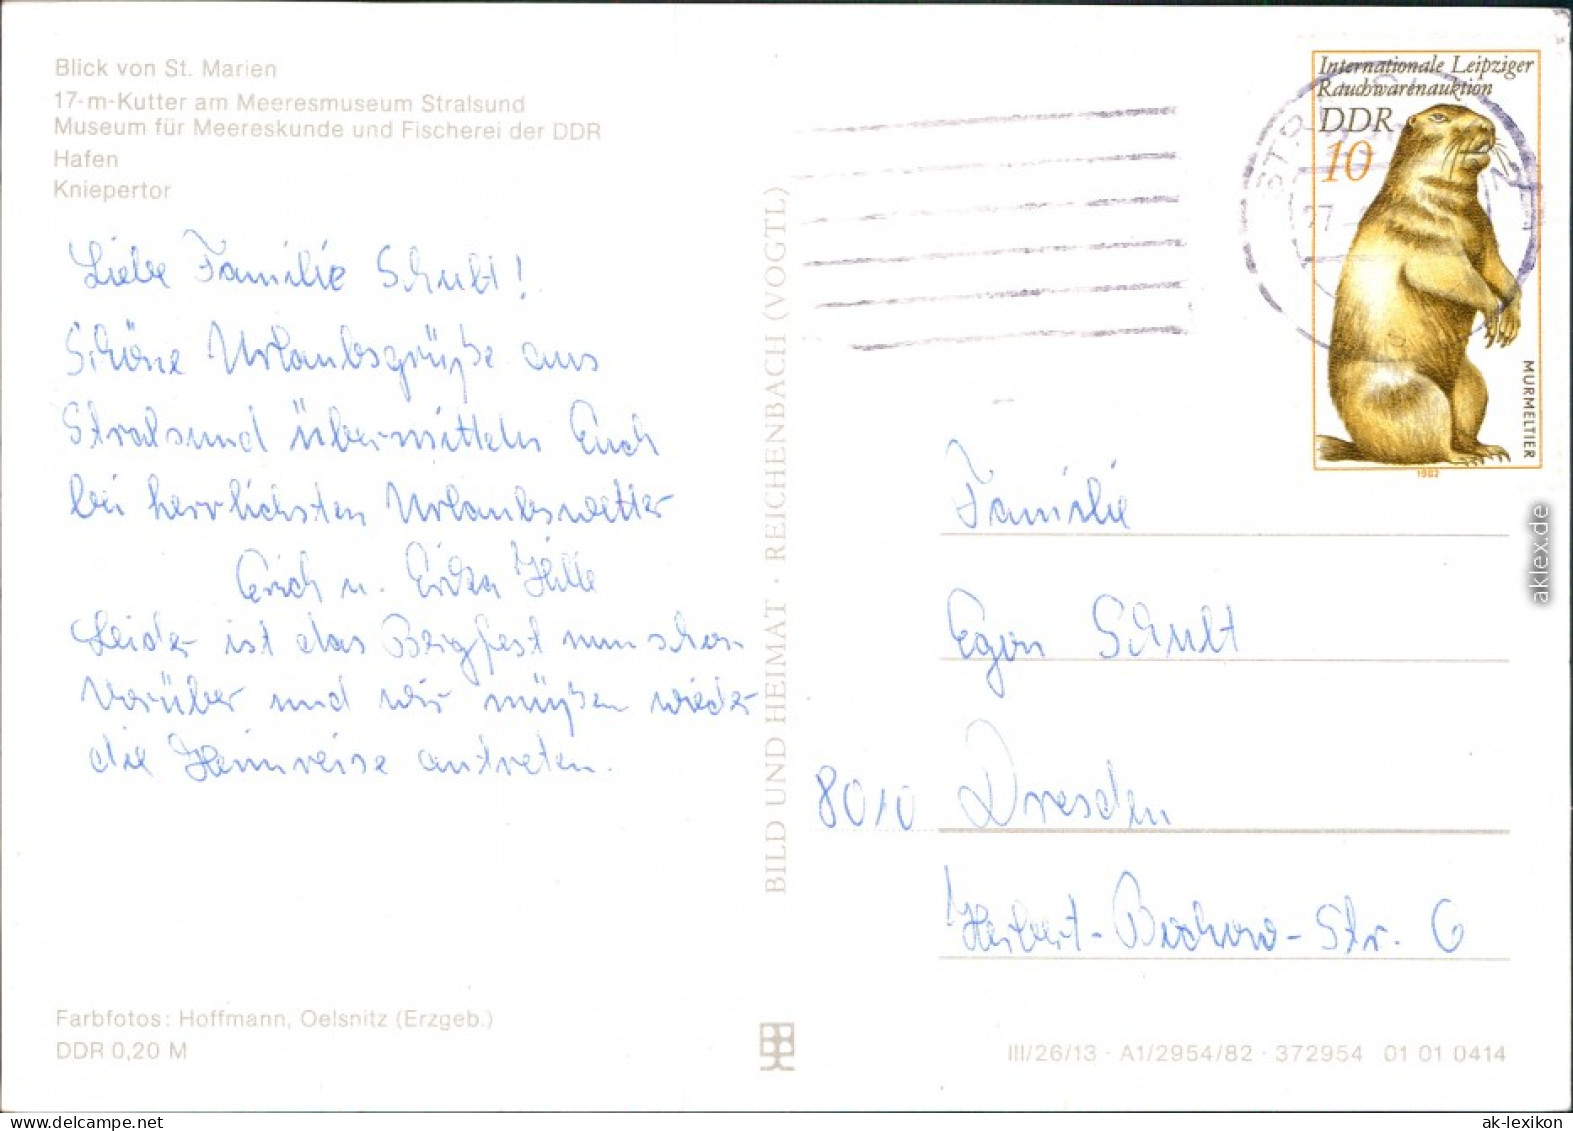 Blick von St. Marien
17-m-Kutter am Meeresmuseum Stralsund
Museum für Meereskunde und Fischerei der DDR
Hafen
Kniepertor
Liebe Familie Schult!
Schöne Urlaubsgrüße aus
Stralsund übermitteln Euch
bei herrlichsten Urlaubswetter
Erich u. Erika Hille
Leider ist das Bergfest nun schon
vorüber und wir müßen wieder
die Heimreise antreten.
Farbfotos: Hoffmann, Oelsnitz (Erzgeb.)
DDR 0,20 M
BILD UND HEIMAT · REICHENBACH (VOGTL)
Internationale Leipziger
Rauchwarenauktion
DDR
10
MURMELTIER
1982
Familie
Egon Schult
8010 Dresden
Herbert-Bochow-Str. 6
III/26/13 · A1/2954/82 · 372954 01 01 0414
aklex.de
www.delcampe.net
ak-lexikon